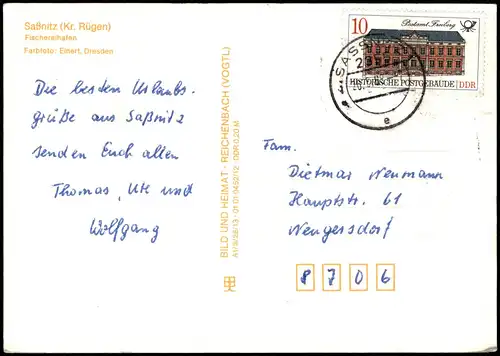 Saßnitz (Kr. Rügen)
Fischereihafen
Farbfoto: Einert, Dresden
Die besten Urlaubs-
grüße aus Saßnitz
senden Euch allen
Thomas, Ute und
Wolfgang
BILD UND HEIMAT · REICHENBACH (VOGTL)
10
Postamt Freiberg
HISTORISCHE POSTGEBÄUDE DDR
SASSNITZ
e
Fam.
Dietmar Neumann
Hauptstr. 61
Neugersdorf
8706